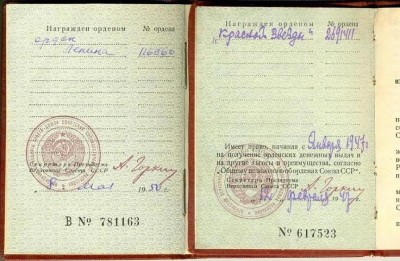 Награжден орденом № ордена
орден
Ленина 116860
Секретарь Президиума
Верховного Совета СССР А. Горкин
мая 1950 г.
В № 781163
Награжден орденом № ордена
„Красной Звезды" 2691411
Имеет право, начиная с Января 1947 г.
на получение орденских денежных выдач и
на другие льготы и преимущества, согласно
„Общему положению об орденах Союза ССР".
Секретарь Президиума
Верховного Совета СССР А. Горкин
февраля 1947 г.
№ 617523